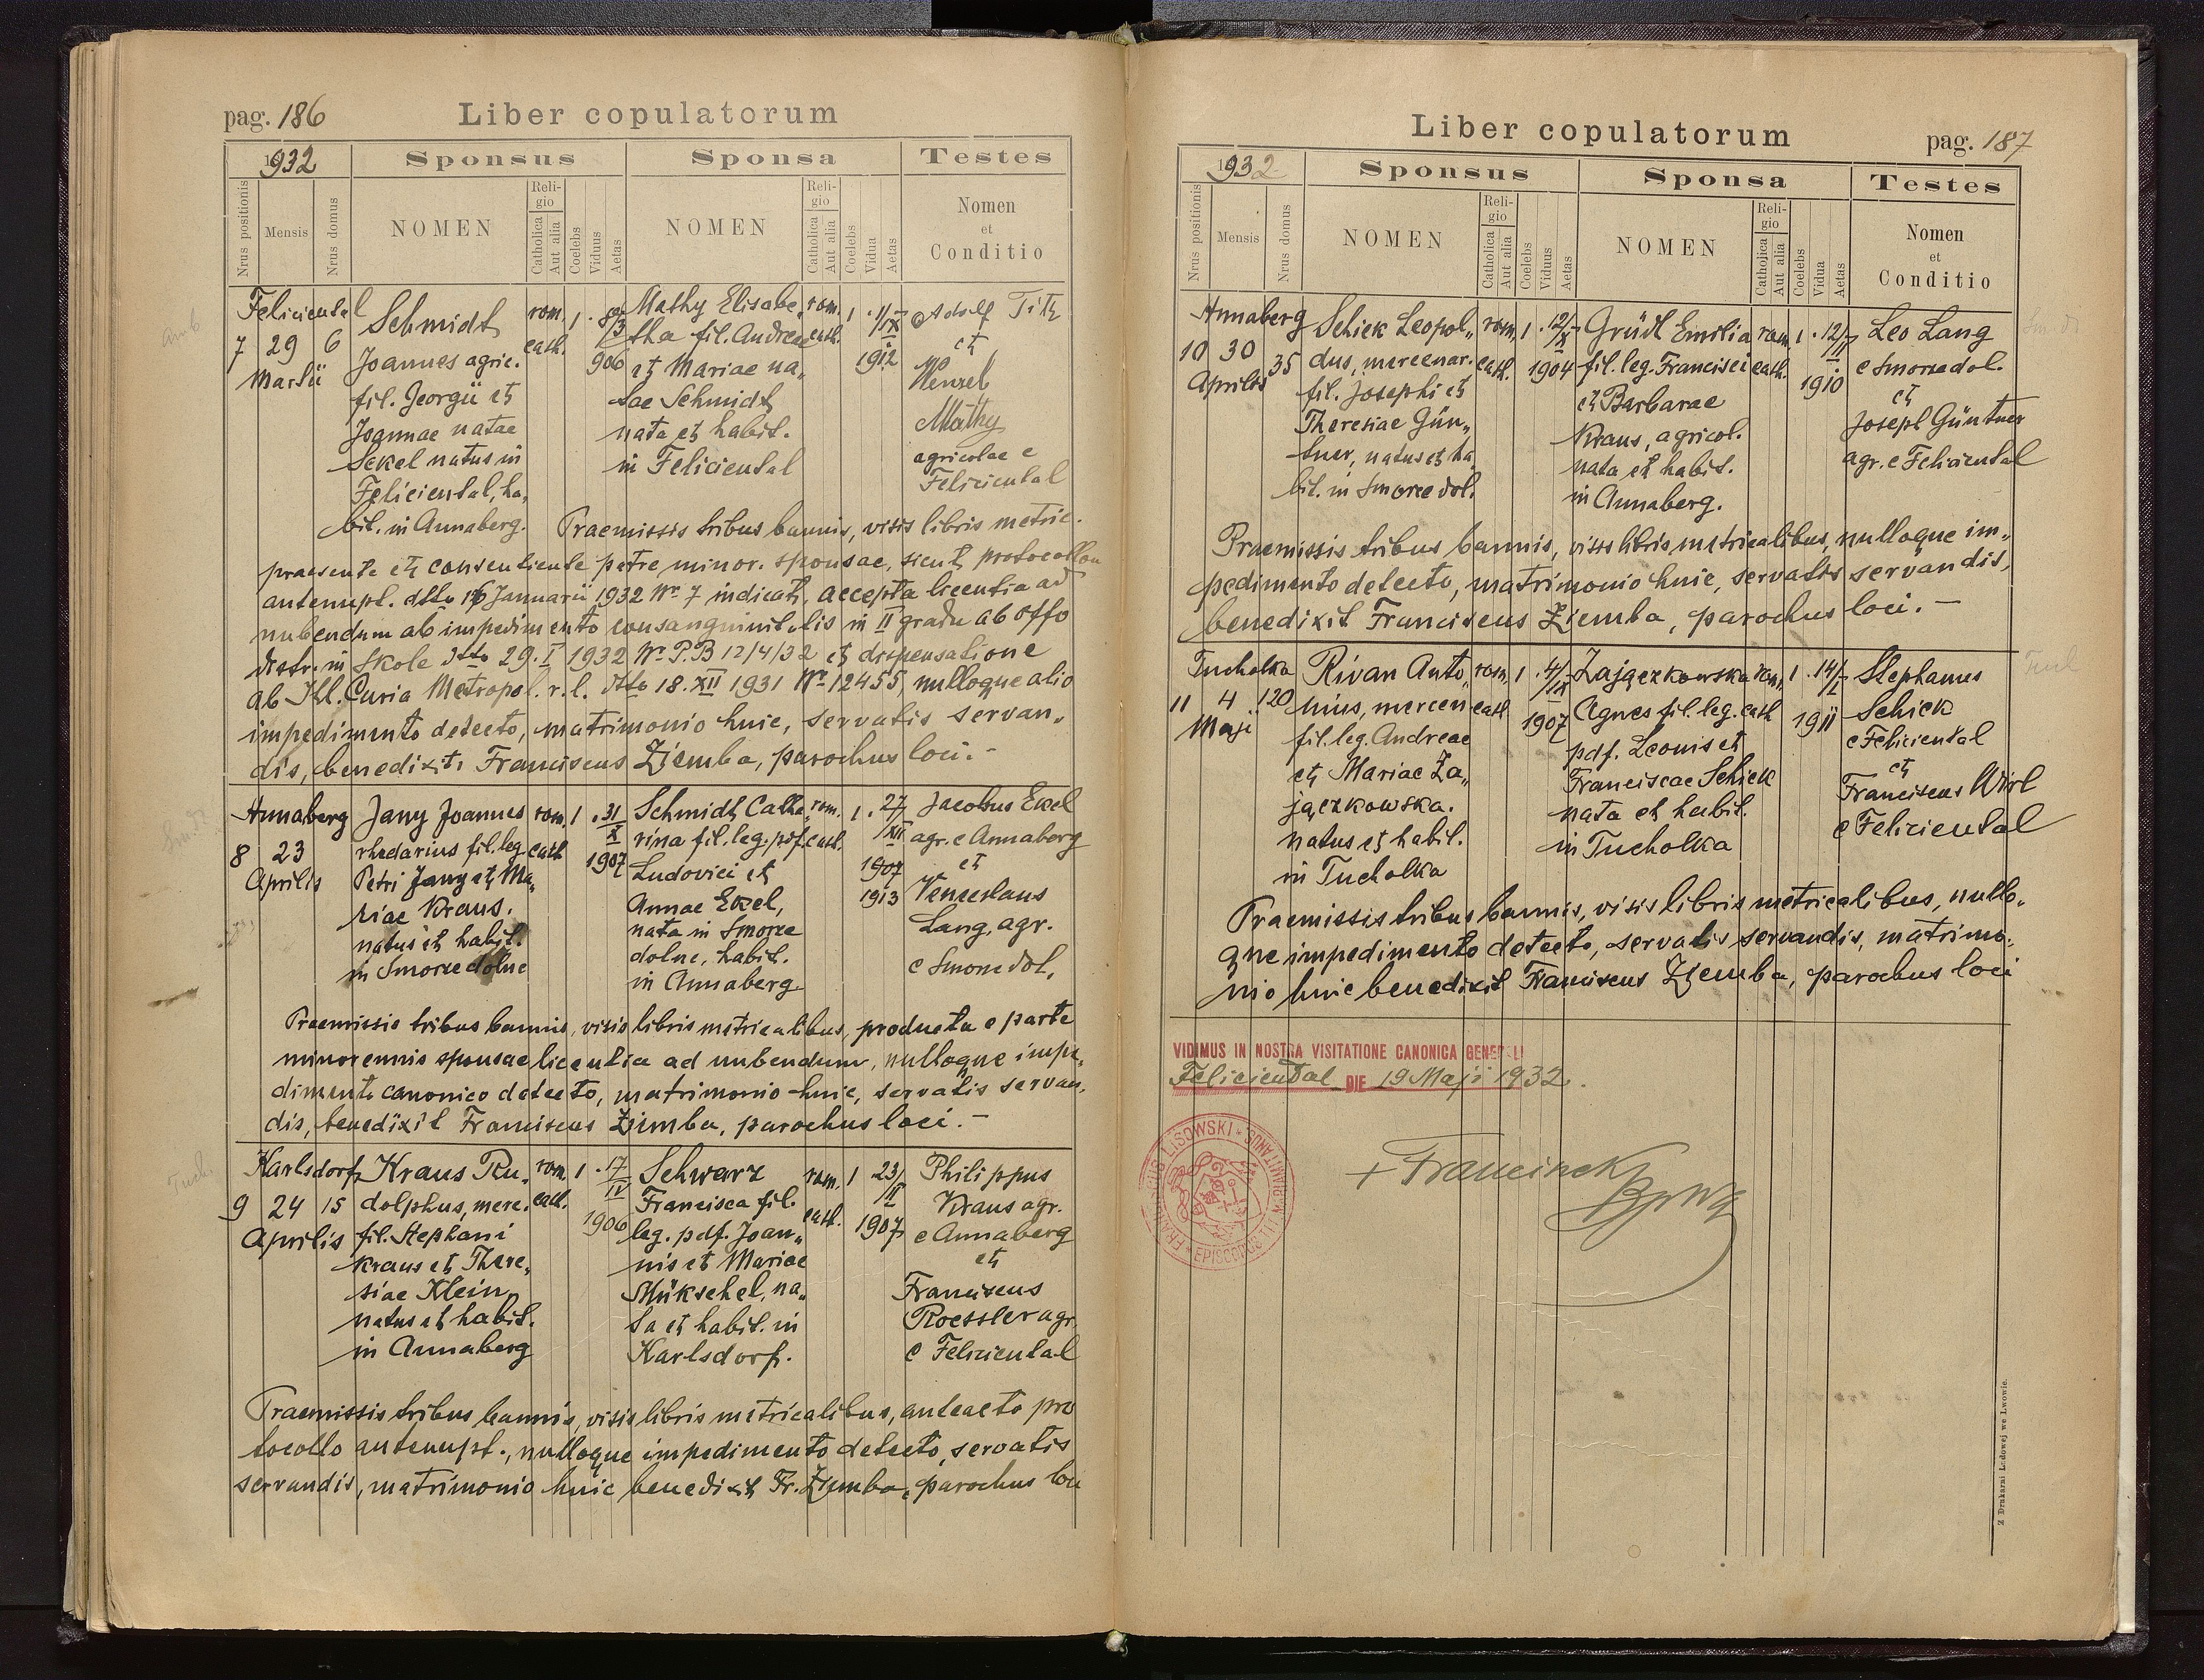 pag. 186
Liber copulatorum
1932
Sponsus
Sponsa
Testes
Nrus positionis
Mensis
Nrus domus
NOMEN
Religio
Catholica
Aut alia
Coelebs
Viduus
Aetas
NOMEN
Religio
Catholica
Aut alia
Coelebs
Vidua
Aetas
Nomen
et
Conditio
Feliciental
7 29 6
Martii
Schmidt
Joannes agric.
fil. Georgii et
Joannae natae
Sekel natus in
Feliciental, ha„
bit. in Annaberg.
rom. cath.
1
906
Mathy Elisabe„
tha fil. Andreae
et Mariae na„
tae Schmidt
nata et habit.
in Feliciental
rom. cath.
1
1/IX
1912
Adolf Titz
et
Wenzel
Mathy
agricolae e
Feliciental
Praemissis tribus bannis, visis libris metric.
praesente et consentiente patre minor. sponsae, sicut protocollon
antenupt. dtto 16 Januarii 1932 Nr. 7 indicat, accepta licentia ad
nubendum ab impedimento consanguinitatis in II gradu ab offo
distr. in Skole dtto 29. I 1932 Nr. P.B 12/4/32 et dispensatione
ab Ill. Curia Metropol. r. l. dtto 18. XII 1931 Nr 12455, nulloque alio
impedimento detecto, matrimonio huic, servatis servan„
dis, benedixit Franciscus Ziemba, parochus loci.-
Annaberg
8 23
Aprilis
Jany Joannes
rhedarius fil. leg.
Petri Jany et Ma„
riae Kraus.
natus et habit.
in Smorze dolne
rom. cath.
1
31/X
1907
Schmidt Catha„
rina fil. leg. pdf.
Ludovici et
Annae Ekel,
nata in Smorze
dolne, habit.
in Annaberg
rom. cath.
1
27/XII
1907
1913
Jacobus Ekel
agr. e Annaberg
et
Venceslaus
Lang, agr.
e Smorze dol.
Praemissis tribus bannis, visis libris metricalibus, producta e parte
minorennis sponsae licentia ad nubendum, nulloque impe„
dimento canonico detecto, matrimonio huic, servatis servan„
dis, benedixit Franciscus Ziemba, parochus loci.-
Karlsdorf
9 24 15
Aprilis
Kraus Ru„
dolphus, merc.
fil. Stephani
Kraus et There„
siae Klein
natus et habit.
in Annaberg
rom. cath.
1
17/IV
1906
Schwarz
Francisca fil.
leg. pdf. Joan„
nis et Mariae
Mükschel, na„
ta et habit. in
Karlsdorf.
rom. cath.
1
23/II
1907
Philippus
Kraus agr.
e Annaberg
et
Franciscus
Roessler agr.
e Feliciental
Praemissis tribus bannis, visis libris metricalibus, anteacto pro
tocollo antenupt., nulloque impedimento detecto, servatis
servandis, matrimonio huic benedixit Fr. Ziemba, parochus loci
Liber copulatorum
pag. 187
1932
Sponsus
Sponsa
Testes
Nrus positionis
Mensis
Nrus domus
NOMEN
Religio
Catholica
Aut alia
Coelebs
Viduus
Aetas
NOMEN
Religio
Catholica
Aut alia
Coelebs
Vidua
Aetas
Nomen
et
Conditio
Annaberg
10 30 35
Aprilis
Schiek Leopol„
dus, mercenar.
fil. Josephi et
Theresiae Gün„
tner, natus et ha„
bit. in Smorze dol.
rom. cath.
1
12/X
1904
Gründl Emilia
fil. leg. Francisci
et Barbarae
Kraus, agricol.
nata et habit.
in Annaberg.
rom. cath.
1
12/II
1910
Leo Lang
e Smorze dol.
et
Joseph Güntner
agr. e Feliciental
Praemissis tribus bannis, visis libris metricalibus, nulloque im„
pedimento detecto, matrimonio huic, servatis servandis,
benedixit Franciscus Ziemba, parochus loci.-
Tucholka
11 4 120
Maji
Rivan Anto„
nius, mercen
fil. leg. Andreae
et Mariae Za„
jączkowska.
natus et habit.
in Tucholka
rom. cath
1
4/IX
1907
Zajączkowska
Agnes fil. leg.
pdf. Leonis et
Franciscae Schiek
nata et habit.
in Tucholka
rom. cath
1
14/I
1911
Stephanus
Schiek
e Feliciental
et
Franciscus Wirl
e Feliciental
Praemissis tribus bannis, visis libris metricalibus, nullo„
que impedimento detecto, servatis servandis, matrimo„
nio huic benedixit Franciscus Ziemba, parochus loci
VIDIMUS IN NOSTRA VISITATIONE CANONICA GENERALI
Feliciendal DIE 19 Maji 1932.
LISOWSKI
EPISCOPUS
+ Franciszek
Z Drukarni Ludowej we Lwowie.